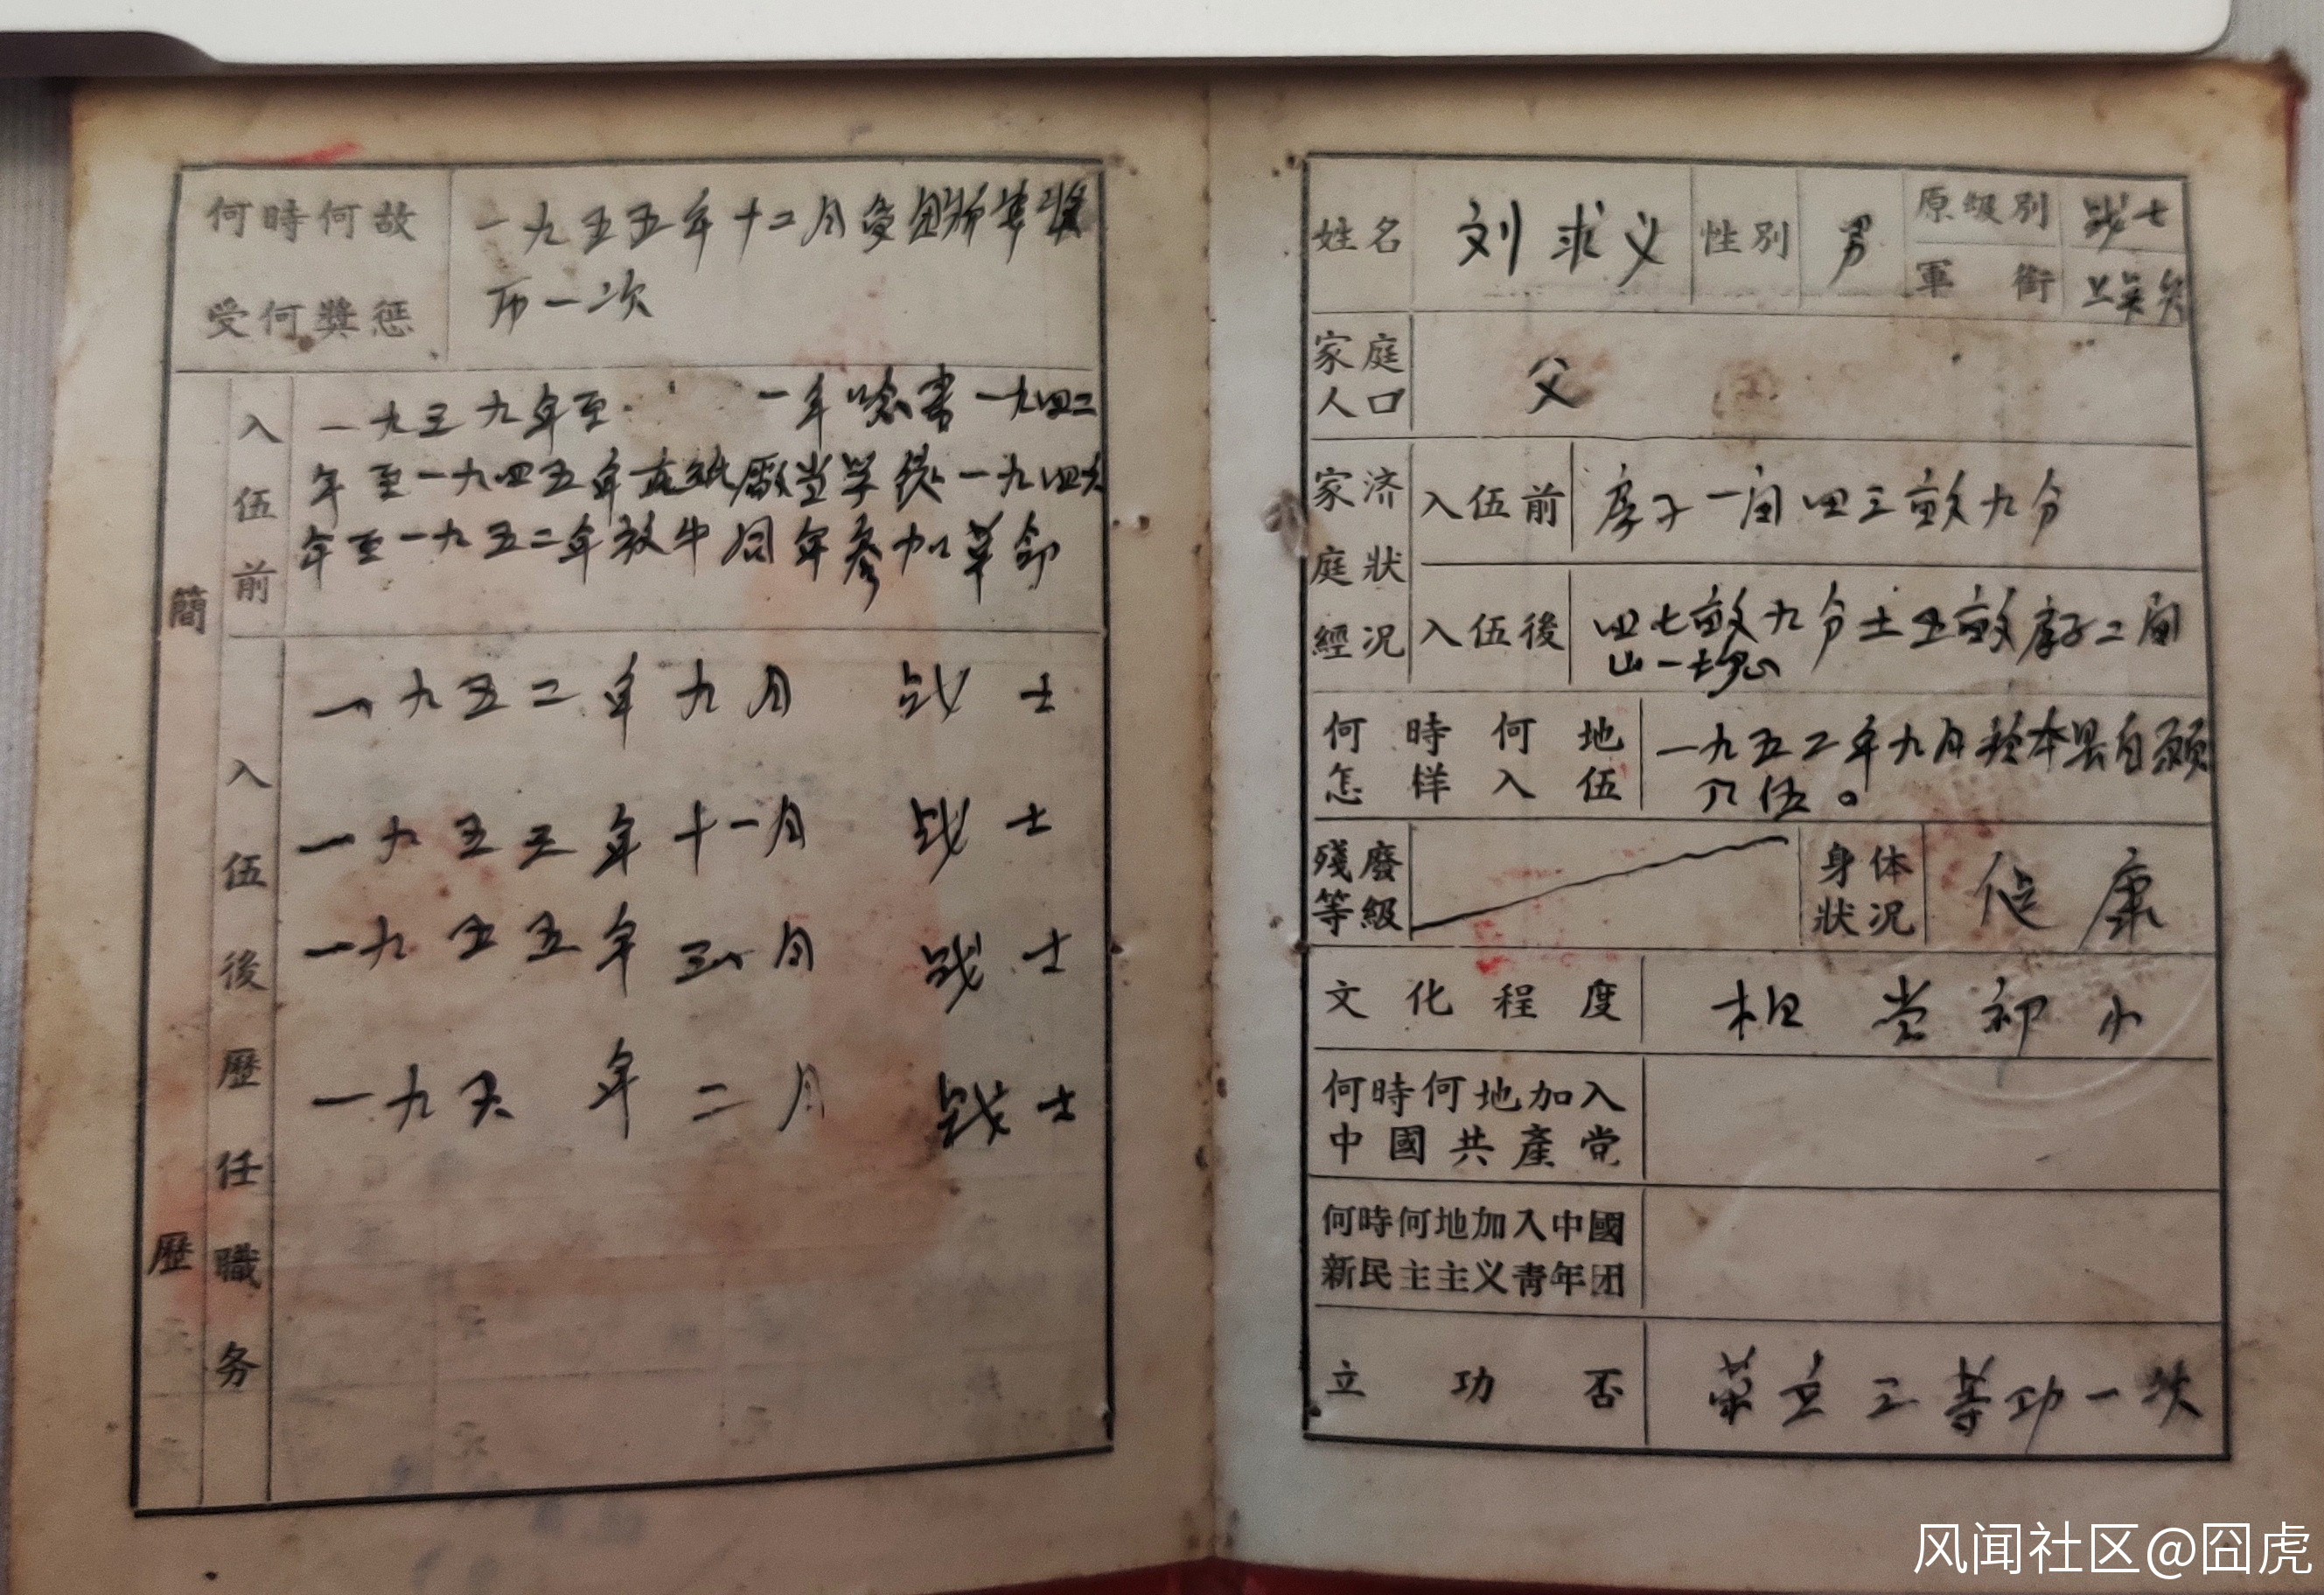 何時何故
受何獎惩
一九五五年十二月受团防毒奖
一次
簡歷
入伍前
一九三九年至 一年念書一九四二
年至一九四五年在纸廠当学徒一九四六
年至一九五二年放牛同年参加革命
入伍後歷任職务
一九五二年九月 战士
一九五三年十一月 战士
一九五五年三月 战士
一九 年二月 战士
姓名 刘求义 性別 男 原级別 战士
軍銜 上等兵
家庭人口 父
家庭經济狀况
入伍前 房子一间田三亩九分
入伍後 田七亩九分土五亩房子二间
山一块
何時何地
怎样入伍
一九五二年九月於本县自願
入伍。
殘廢等級
身体狀况 健康
文化程度 相当初小
何時何地加入
中國共產党
何時何地加入中國
新民主主义青年团
立功否 荣立三等功一次
风闻社区@囧虎